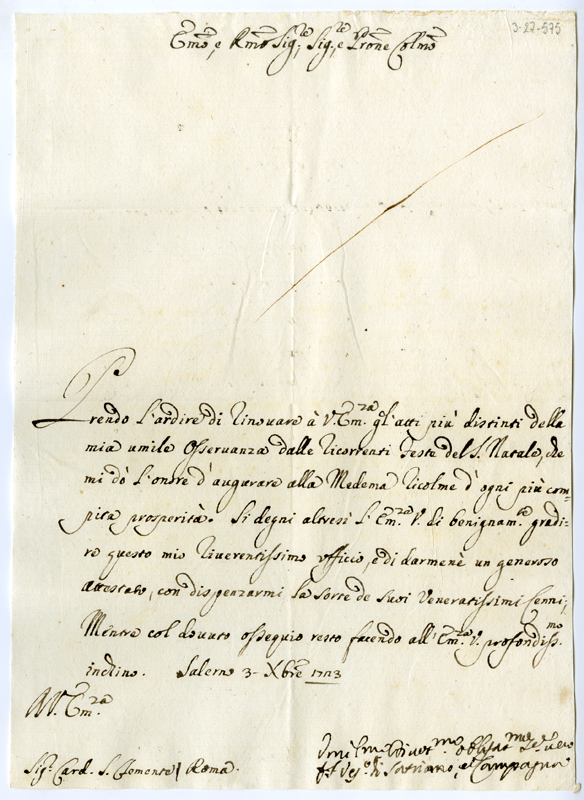 3-27-575
Emo, e Rmo Sig:, Sig:re, e Prone Colmo
Prendo l'ardire di rinovare à V. Em.za gl'atti più distinti della
mia umile osservanza dalle ricorrenti feste del S. Natale, che
mi dò l'onore d'augurare alla Medema ricolme d'ogni più com-
pita prosperità. Si degni altresì l'Em.za V. di benignam.te gradi-
re questo mio riverentissimo ufficio, e di darmene un generoso
attestato, con dispenzarmi la sorte de suoi Veneratissimi Cenni;
Mentre col dovuto ossequio resto facendo all'Em.za V. profondiss.mo
inchino. Salerno 3 Xbre 1723
A V. Em.za
Sig.r Card. S. Clemente / Roma.
di Satriano, e Campagna